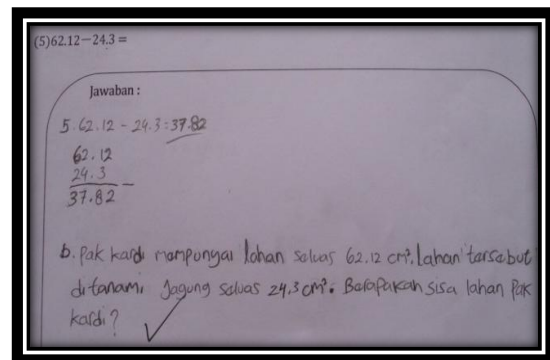 (5)62.12−24.3 =
Jawaban :
5. 62.12 - 24.3 = 37.82
62.12
24.3 −
37.82
b. Pak kardi mempunyai lahan seluas 62.12 cm². Lahan tersebut
ditanami Jagung seluas 24,3 cm². Berapakah sisa lahan Pak
kardi?